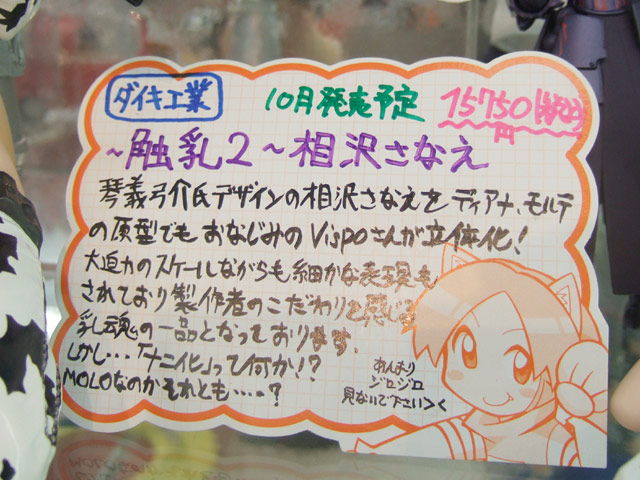 ダイキ工業
10月発売予定
15750円(税込)
~触乳2~相沢さなえ
琴義弓介氏デザインの相沢さなえをディアナ、モルテ
の原型でもおなじみのVispoさんが立体化!
大迫力のスケールながらも細かな表現も
されており製作者のこだわりを感じる
乳魂の一品となっております.
しかし…「ナニ化」って何か!?
MOLOなのかそれとも……?
あんまり
ジロジロ
見ないで下さい><